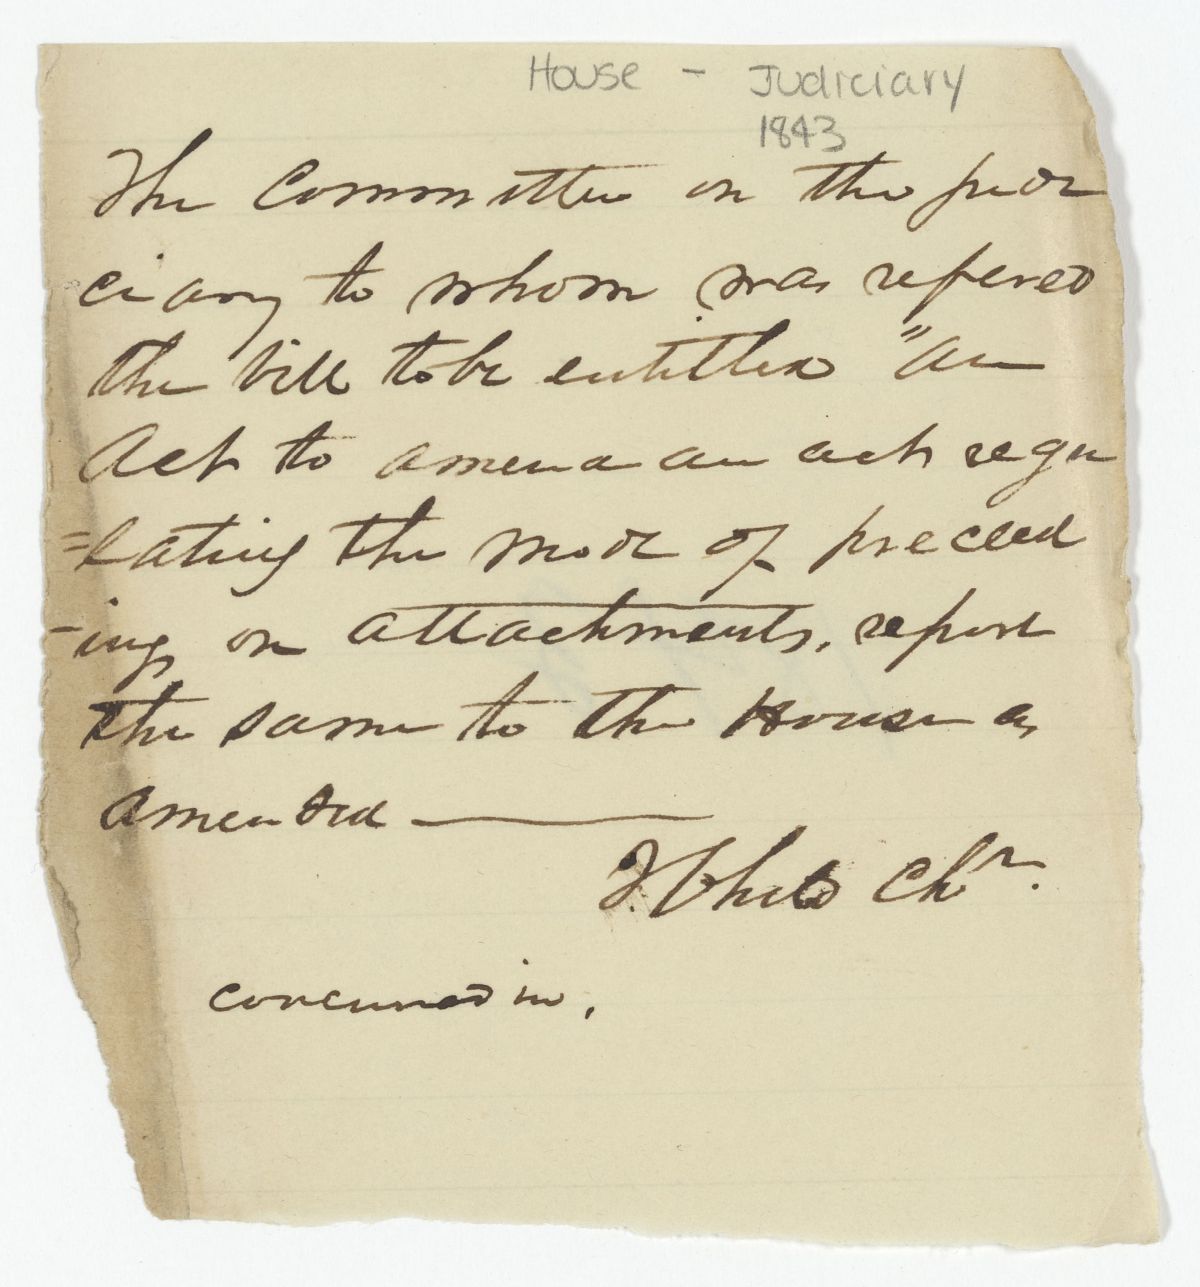 House - Judiciary
1843
The Committee on the judi
ciary to whom was refered
the bill to be entitled "an
Act to amend an act regu
=lating the mode of preceed
-ing on attachments, report
the same to the House as
amended
Chn.
concurred in.